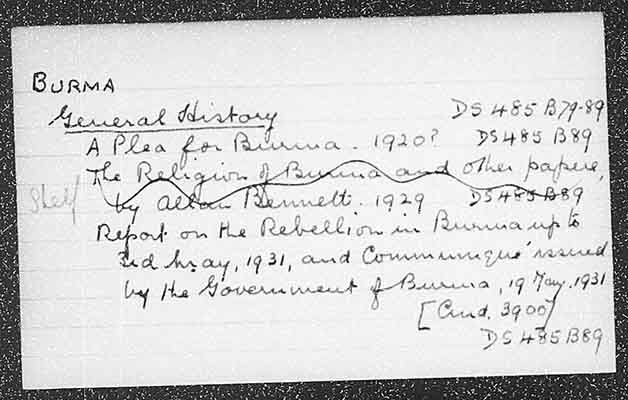 BURMA
General History DS 485 B79-89
A Plea for Burma. 1920? DS 485 B89
The Religion of Burma and other papers,
Shelf by Allan Bennett. 1929 DS 485 B89
Report on the Rebellion in Burma up to
3rd May, 1931, and Communique issued
by the Government of Burma, 19 May. 1931
[Cmd. 3900]
DS 485 B89